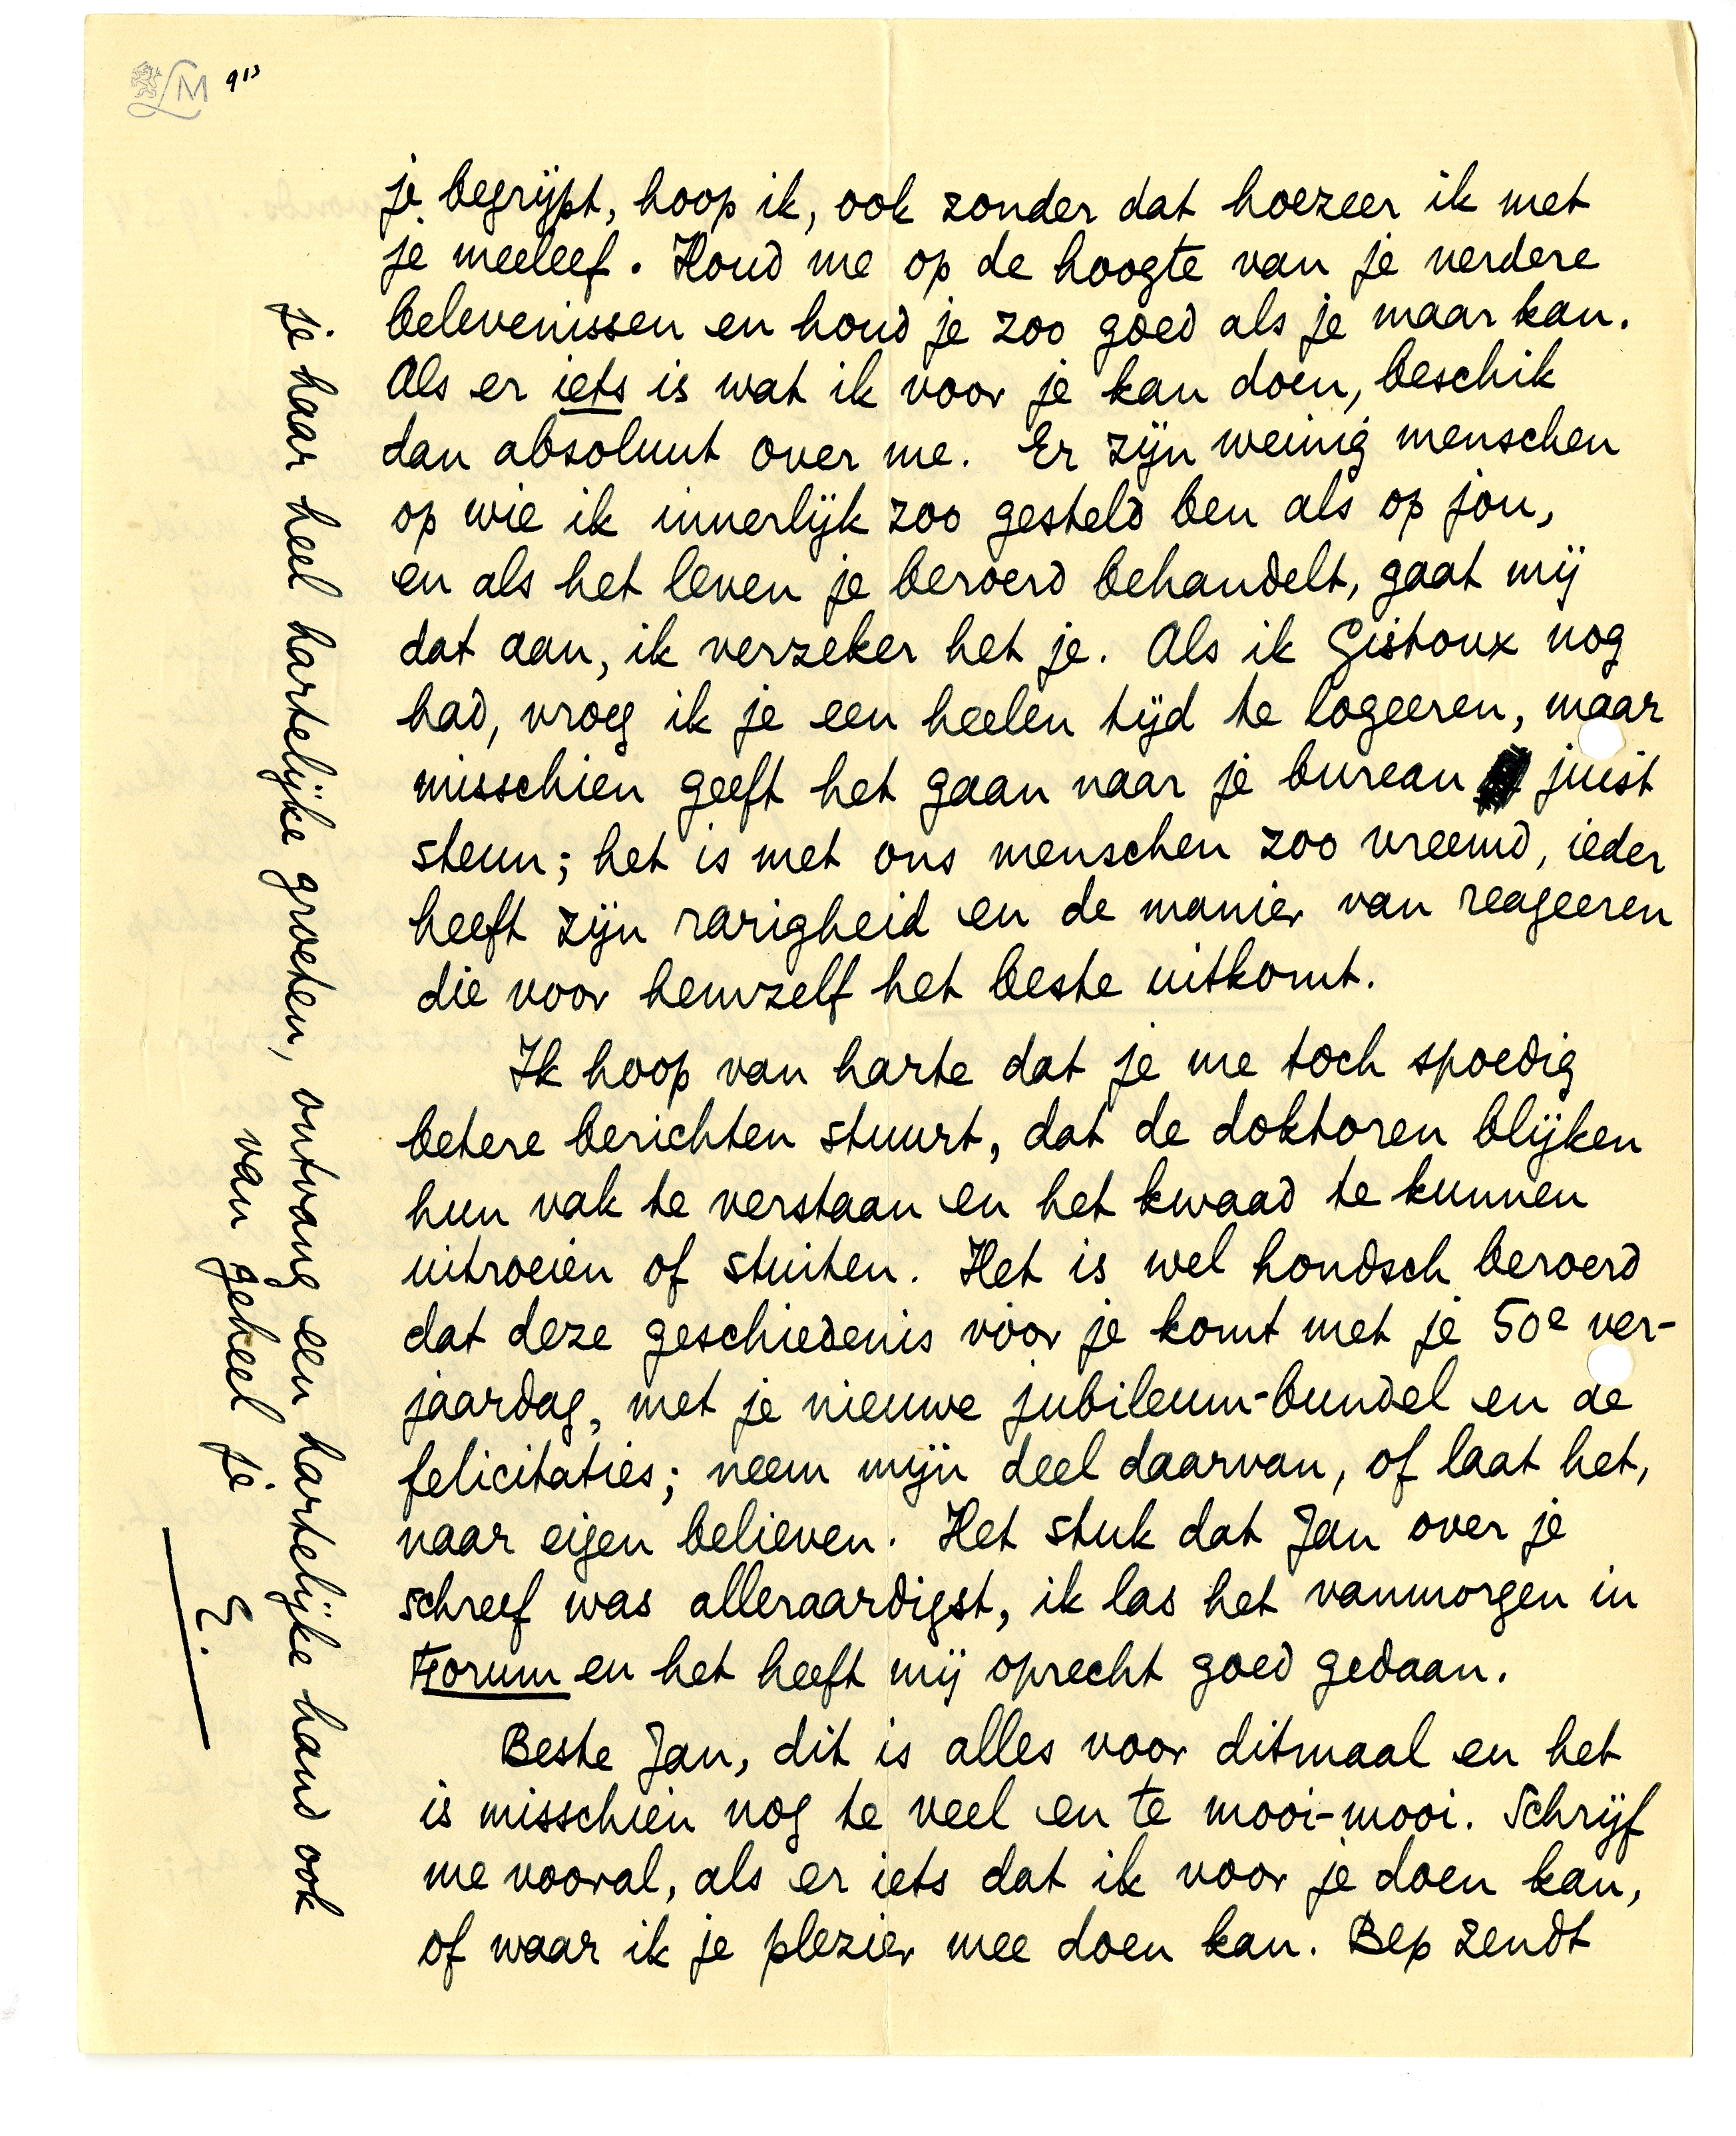 LM 913
je begrijpt, hoop ik, ook zonder dat hoezeer ik met
je meeleef. Houd me op de hoogte van je verdere
belevenissen en houd je zoo goed als je maar kan.
Als er iets is wat ik voor je kan doen, beschik
dan absoluut over me. Er zijn weinig menschen
op wie ik innerlijk zoo gesteld ben als op jou,
en als het leven je beroerd behandelt, gaat mij
dat aan, ik verzeker het je. Als ik Gistoux nog
had, vroeg ik je een heelen tijd te logeeren, maar
misschien geeft het gaan naar je bureau juist
steun; het is met ons menschen zoo vreemd, ieder
heeft zijn rarigheid en de manier van reageeren
die voor hemzelf het beste uitkomt.
Ik hoop van harte dat je me toch spoedig
betere berichten stuurt, dat de doktoren blijken
hun vak te verstaan en het kwaad te kunnen
uitroeien of stuiten. Het is wel hondsch beroerd
dat deze geschiedenis voor je komt met je 50e ver-
jaardag, met je nieuwe jubileum-bundel en de
felicitaties; neem mijn deel daarvan, of laat het,
naar eigen believen. Het stuk dat Jan over je
schreef was alleraardigst, ik las het vanmorgen in
Forum en het heeft mij oprecht goed gedaan.
Beste Jan, dit is alles voor ditmaal en het
is misschien nog te veel en te mooi-mooi. Schrijf
me vooral, als er iets dat ik voor je doen kan,
of waar ik je plezier mee doen kan. Bep zendt
je haar heel hartelijke groeten, ontvang een hartelijke hand ook
van geheel je
E.